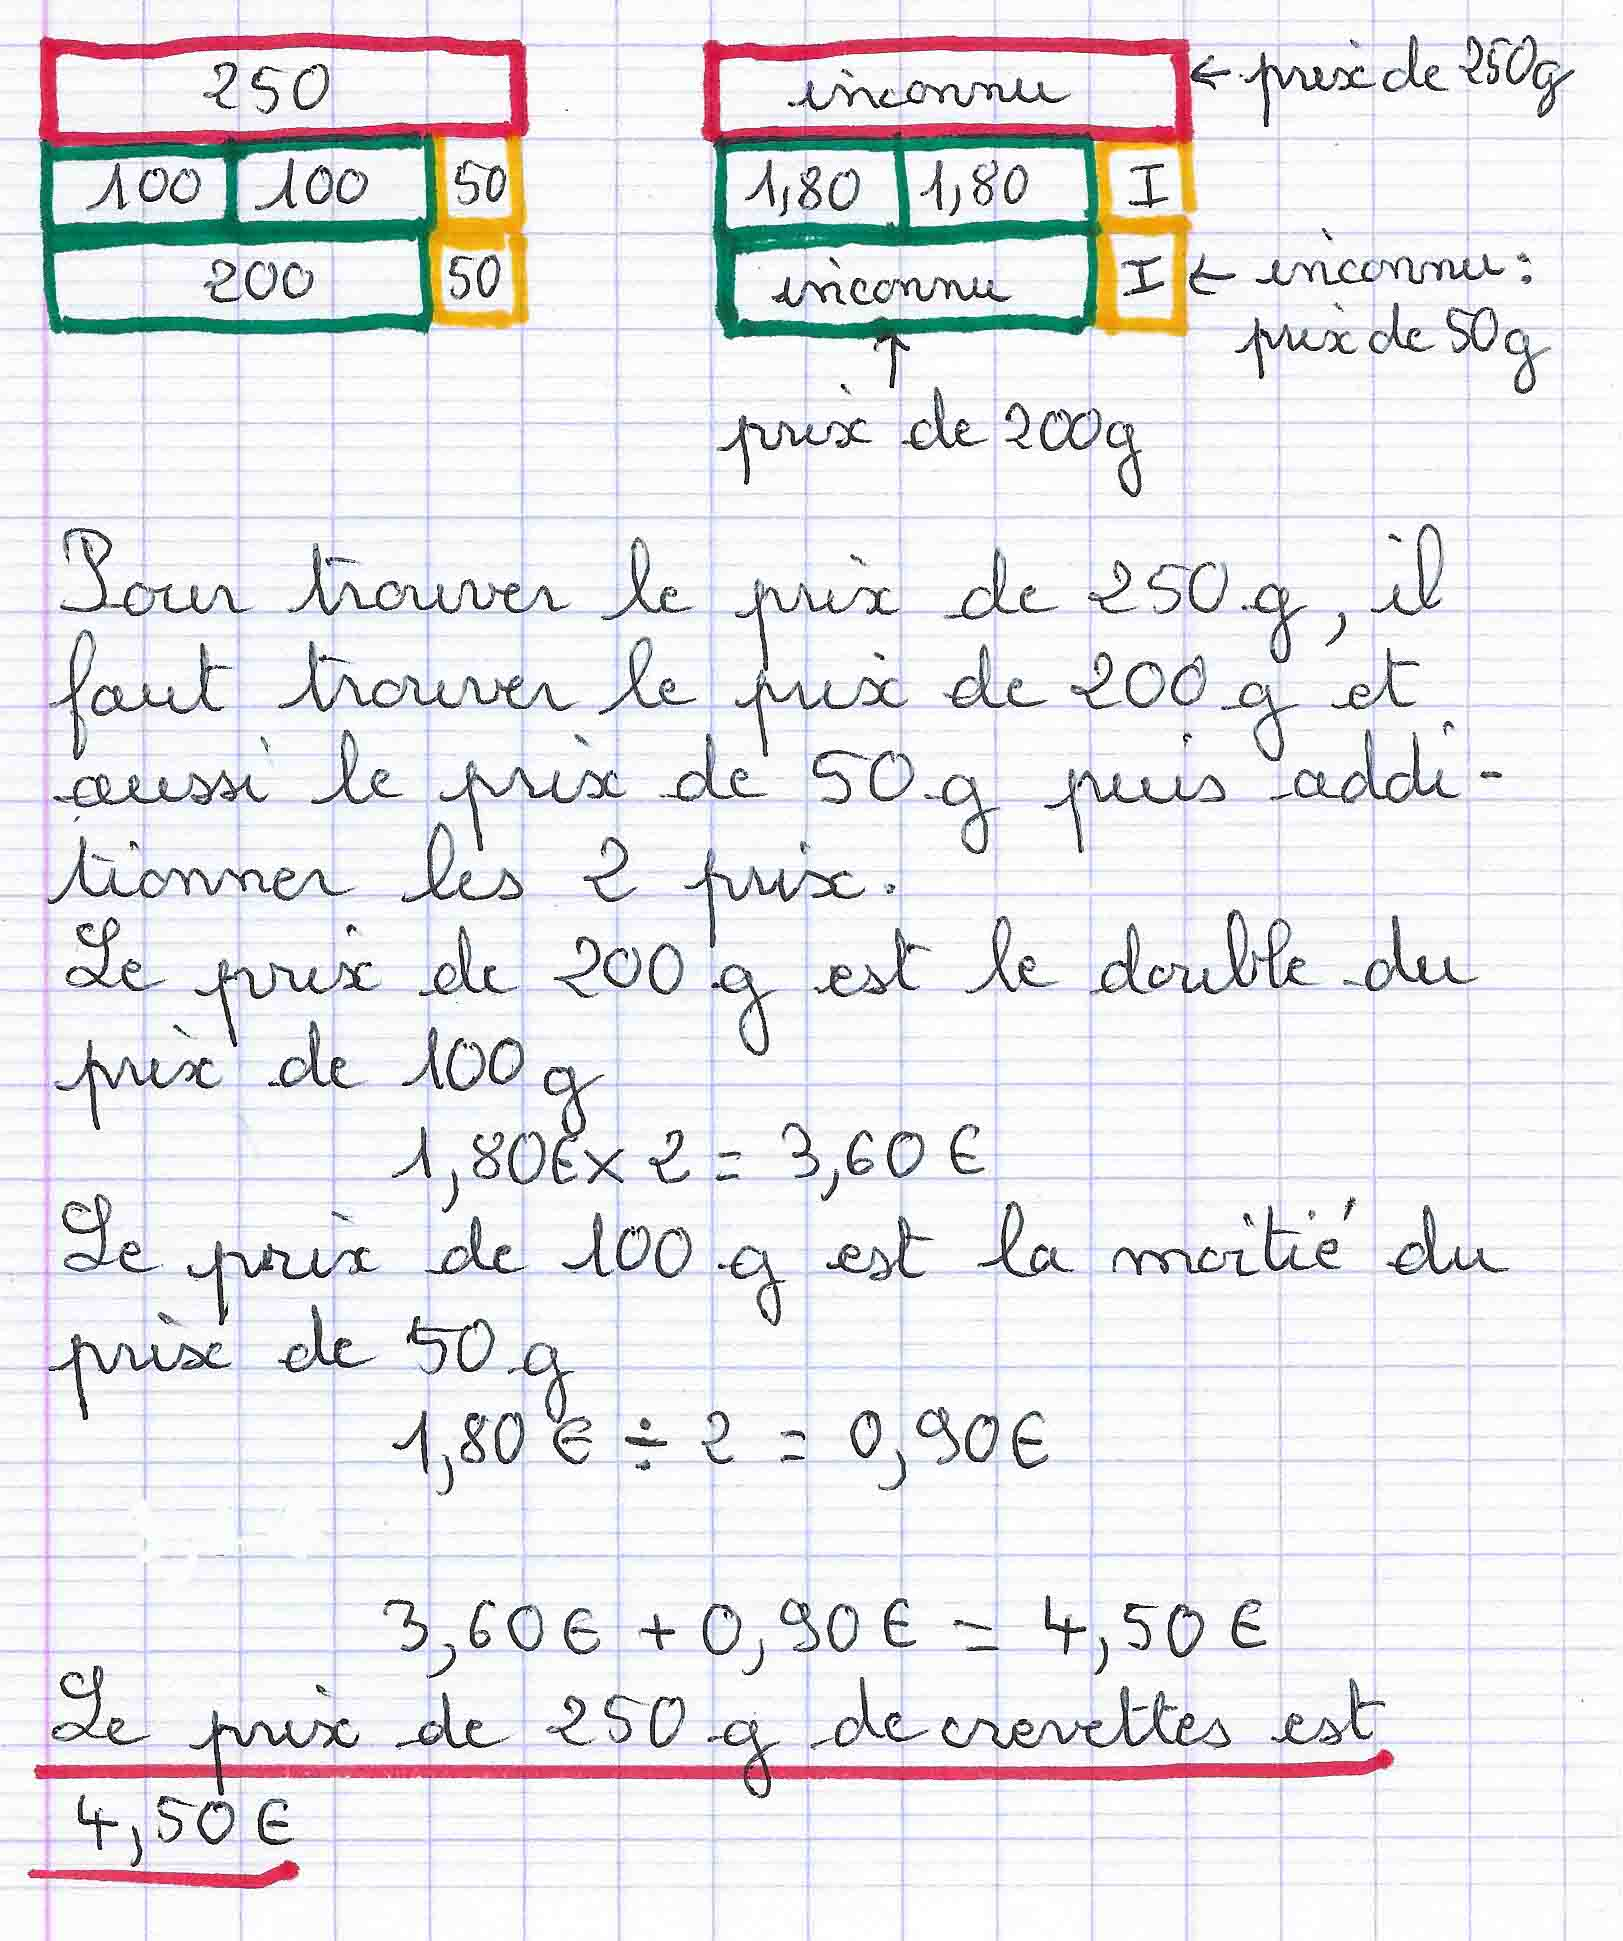 250
100 100 50
200 50
inconnu ← prix de 250g
1,80 1,80 I
inconnu I ← inconnu :
prix de 50g
↑
prix de 200g
Pour trouver le prix de 250 g, il
faut trouver le prix de 200 g et
aussi le prix de 50 g puis addi-
tionner les 2 prix.
Le prix de 200 g est le double du
prix de 100 g
1,80€ x 2 = 3,60 €
Le prix de 100 g est la moitié du
prix de 50 g
1,80 € ÷ 2 = 0,90€
3,60€ + 0,90€ = 4,50 €
Le prix de 250 g de crevettes est
4,50 €